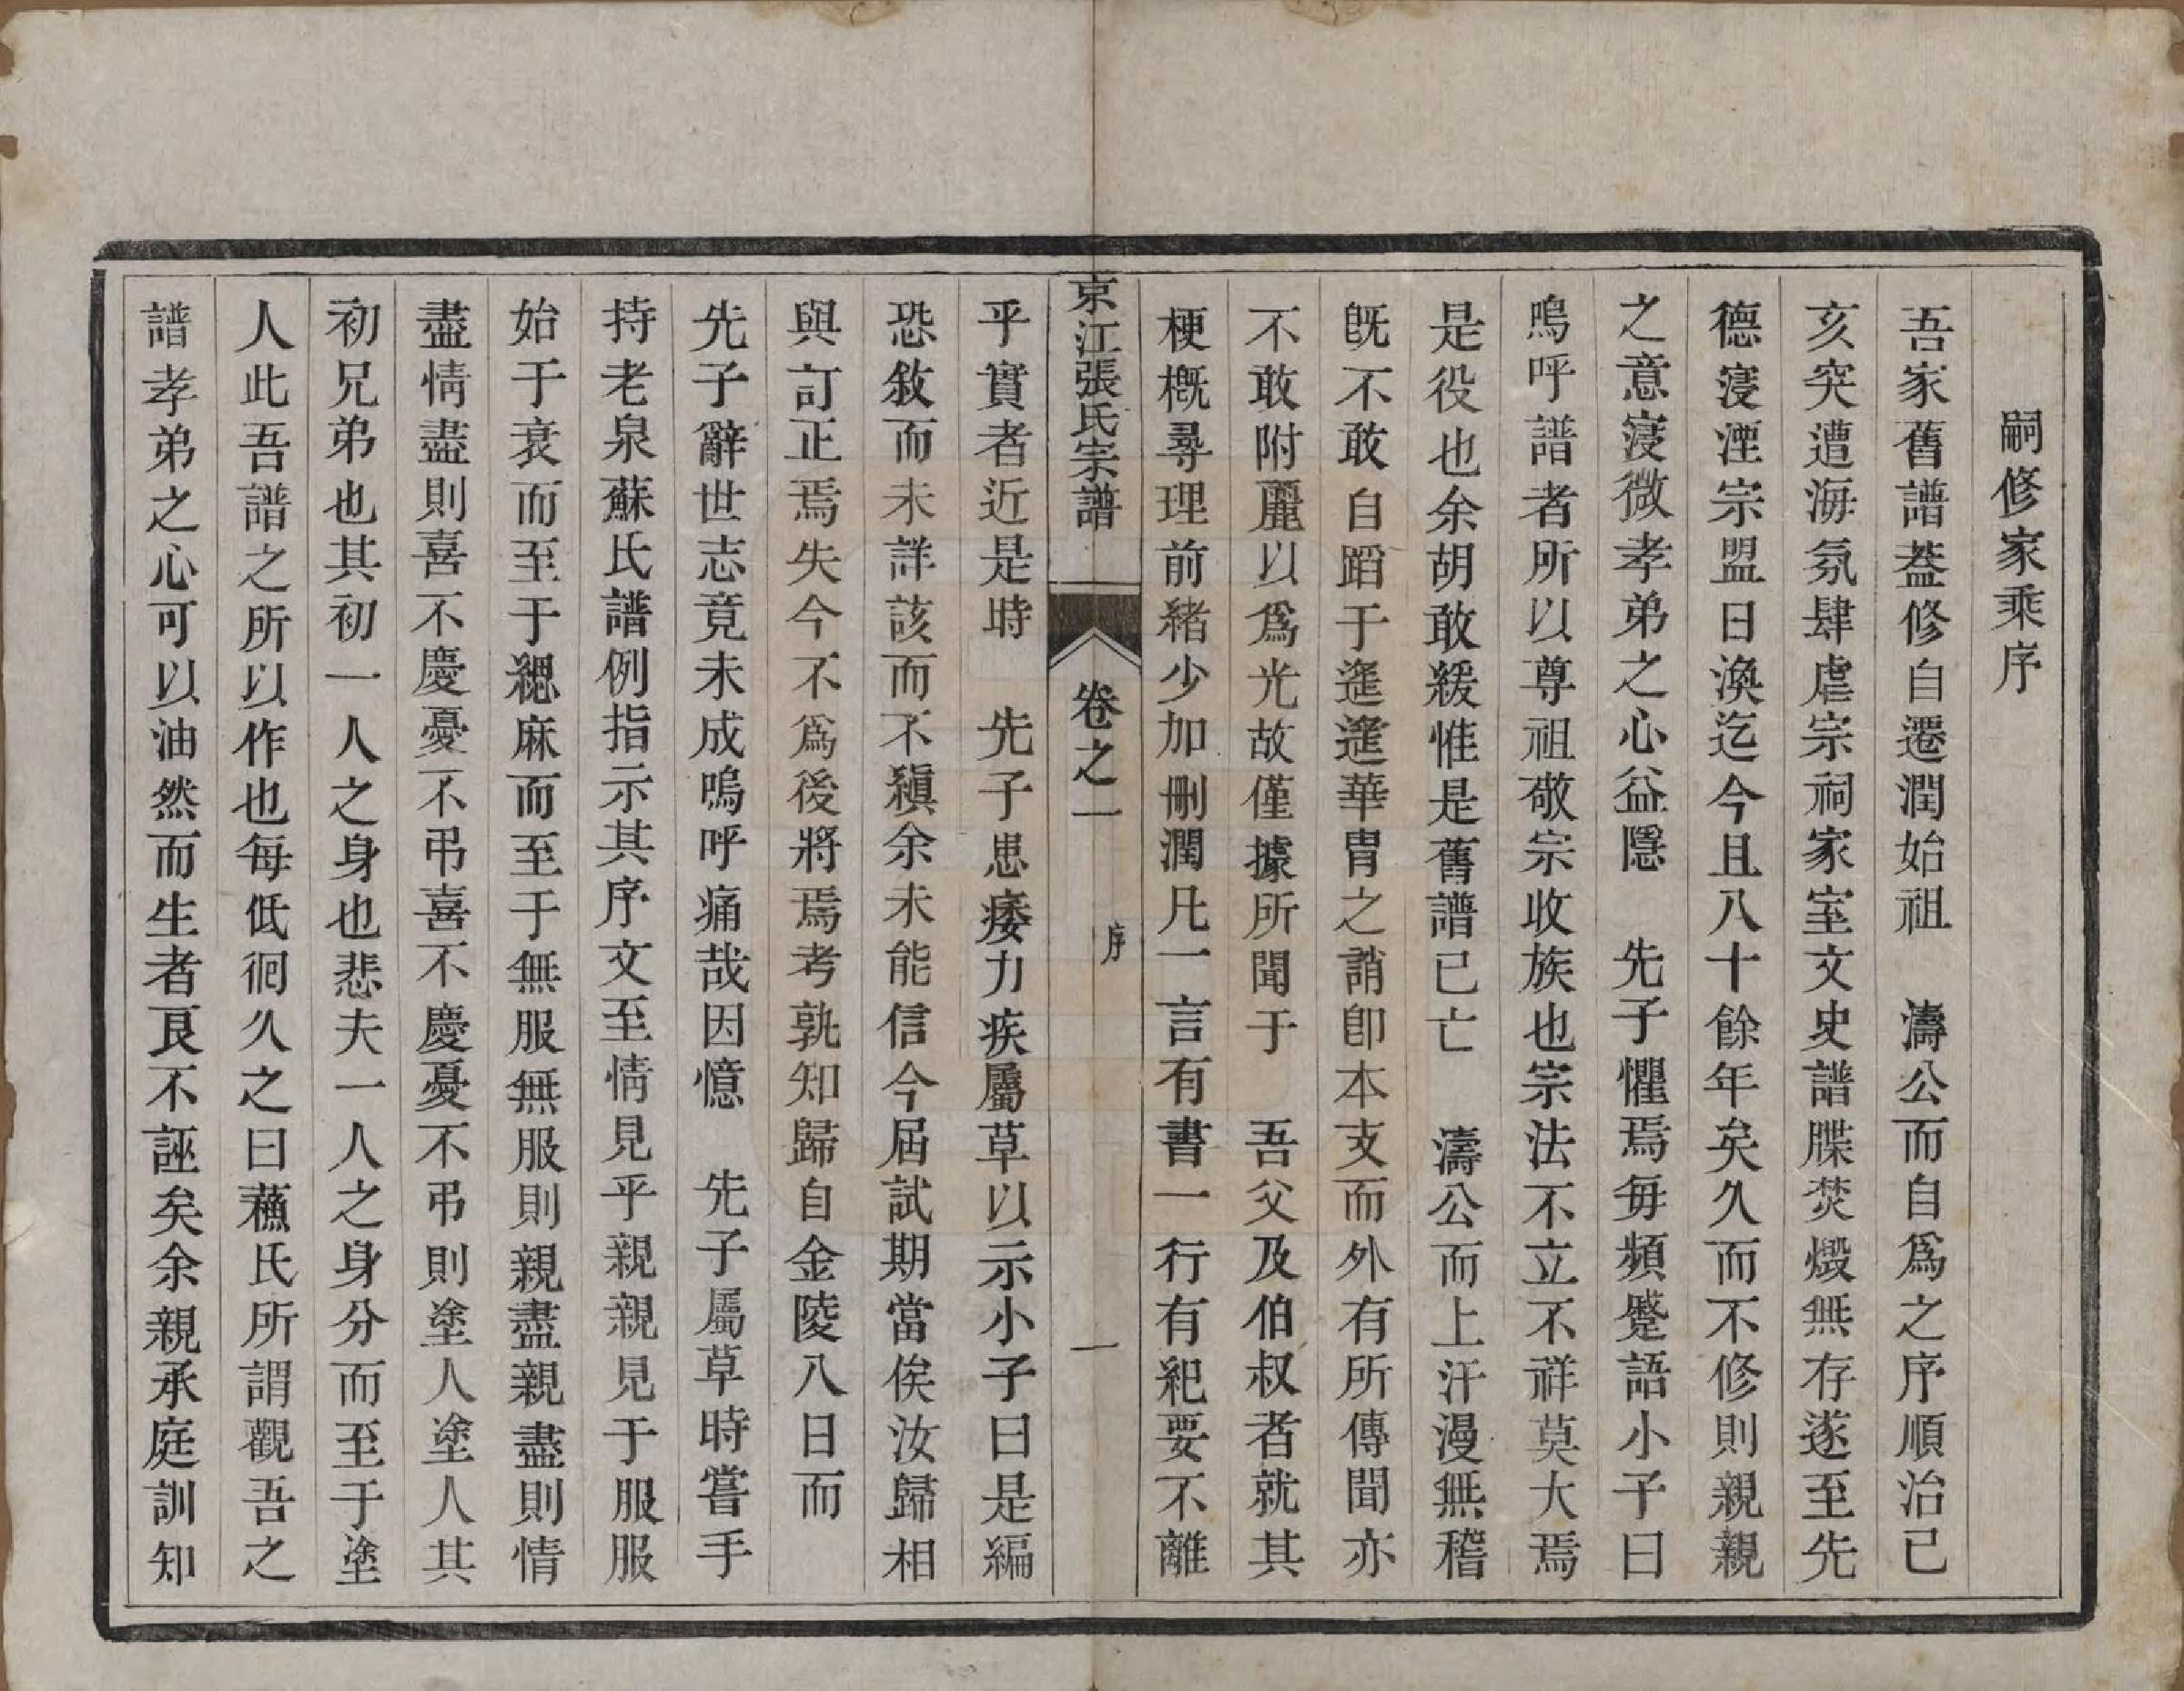 嗣修家乘序
吾家舊譜葢修自遷潤始祖　濤公而自爲之序順治己
亥突遭海氛肆虐宗祠家室文史譜牒焚燬無存遂至先
德寖湮宗盟日渙迄今且八十餘年矣久而不修則親親
之意寖微孝弟之心益隱　先子懼焉每頻蹙語小子曰
嗚呼譜者所以尊祖敬宗收族也宗法不立不祥莫大焉
是役也余胡敢緩惟是舊譜已亡　濤公而上汗漫無稽
旣不敢自蹈于遙遙華胄之誚卽本支而外有所傳聞亦
不敢附麗以爲光故僅據所聞于　吾父及伯叔者就其
梗槪尋理前緖少加刪潤凡一言有書一行有紀要不離
京江張氏宗譜　卷之一　序　一
乎實者近是時　先子患痿力疾屬草以示小子曰是編
恐敘而未詳該而不縝余未能信今屆試期當俟汝歸相
與訂正焉失今不爲後將焉考孰知歸自金陵八日而
先子辭世志竟未成嗚呼痛哉因憶　先子屬草時嘗手
持老泉蘇氏譜例指示其序文至情見乎親親見于服服
始于衰而至于緦麻而至于無服無服則親盡親盡則情
盡情盡則喜不慶憂不弔喜不慶憂不弔則塗人塗人其
初兄弟也其初一人之身也悲夫一人之身分而至于塗
人此吾譜之所以作也每低徊久之曰蘓氏所謂觀吾之
譜孝弟之心可以油然而生者良不誣矣余親承庭訓知